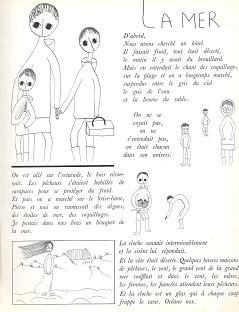 LA MER
D'abord,
Nous avons cherché un hôtel.
Il faisait froid, tout était désert,
le matin il y avait du brouillard.
Mais on entendait le chant des coquillages
sur la plage et on a longtemps marché,
suspendus entre le gris du ciel
le gris de l'eau
et la brume du sable.
On ne se
voyait pas,
on ne
s'entendait pas,
on était chacun
dans son univers.
On est allé sur l'estacade, le bois réson-
nait. Les pêcheurs s'étaient habillés de
carapaces pour se protéger du froid.
Et puis on a marché sur le brise-lame,
Pierre et moi on ramassait des algues,
des étoiles de mer, des coquillages.
Je portais dans mes bras un bouquet de
la mer.
La cloche sonnait interminablement
et la sirène lui répondait.
Et la côte était déserte. Quelques basses maisons
de pêcheurs, le vent, le grand vent de la grand
mer soufflait et dans le vent, les mères,
les femmes, les fiancées attendent leurs pêcheurs.
Et la cloche est un glas qui à chaque coup
frappe le cœur. Océano nox.